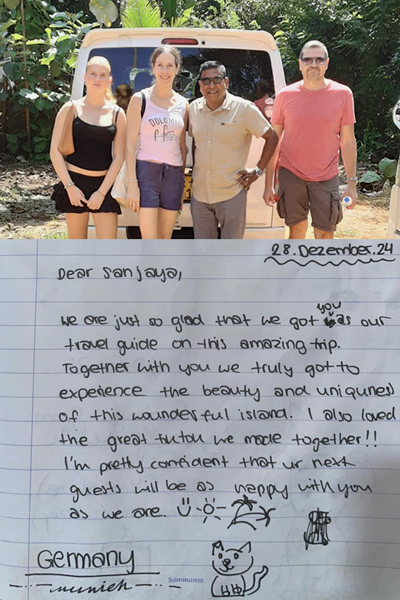 DOLOMITI
28. Dezember. 24
Dear Sanjaya,
we are just so glad that we got you as our
travel guide on this amazing trip.
Together with you we truly got to
experience the beauty and uniquness
of this wounderful island. I also loved
the great tutou we made together!!
I'm pretty confident that ur next
guests will be as happy with you
as we are.
GERMANY
munich